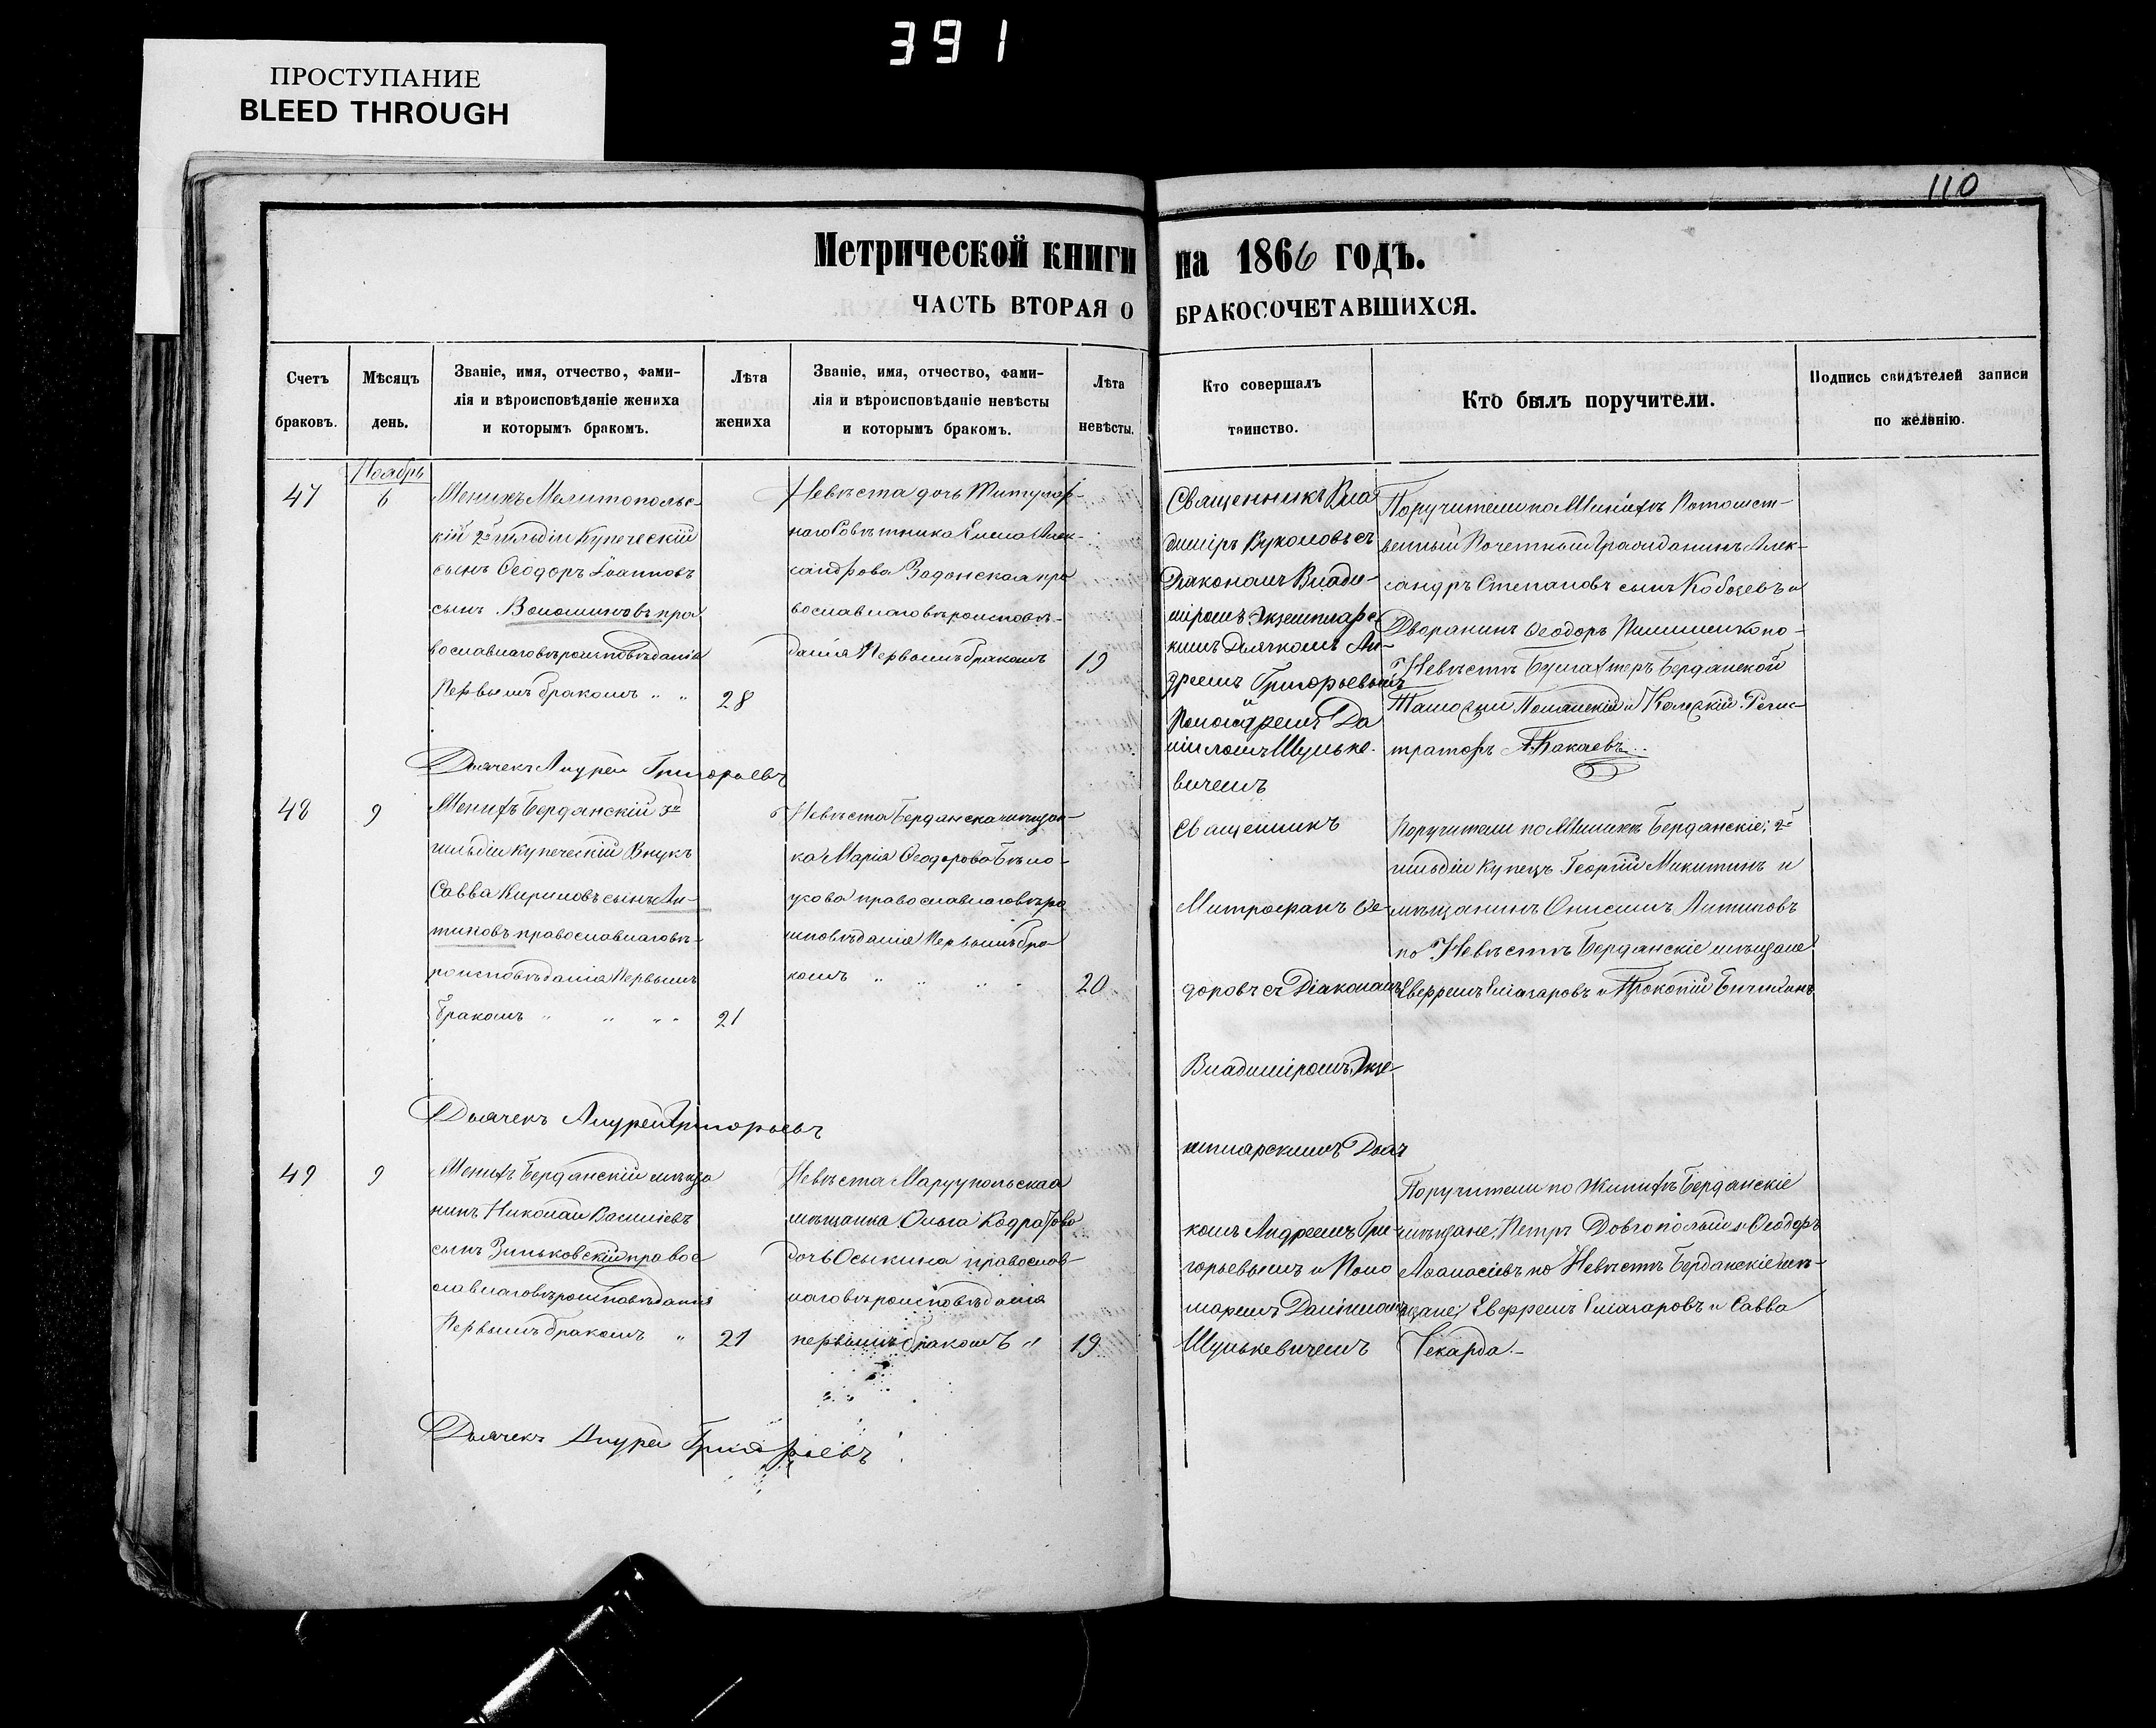 391
ПРОСТУПАНИЕ
BLEED THROUGH
110
Метрической книги на 1866 годъ.
ЧАСТЬ ВТОРАЯ О БРАКОСОЧЕТАВШИХСЯ.
Счетъ браковъ.
Мѣсяцъ день.
Званіе, имя, отчество, фами-
лія и вѣроисповѣданіе жениха
и которымъ бракомъ.
Лѣта жениха
Званіе, имя, отчество, фами-
лія и вѣроисповѣданіе невѣсты
и которымъ бракомъ.
Лѣта невѣсты.
Кто совершалъ
таинство.
Кто былъ поручители.
Подпись свидѣтелей записи
по желанію.
Ноябрь
47
6
Женихъ Мелитопольс-
кій 2й гильдіи Купеческій
сынъ Ѳеодоръ Іоанновъ
сынъ Волошиновъ пра
вославнаго вѣроисповѣданія
Первымъ бракомъ " "
28
Невѣста дочь Титуляр-
наго Совѣтника Елена Алек-
сандрова Задонская пра
вославнаго вѣроисповѣ-
данія Первымъ бракомъ
19
Священникъ Вла
диміръ Вуколовъ съ
Діакономъ Влади-
міромъ Экземпляр
кимъ Дьячкомъ Ан-
дреемъ Григорьевымъ
и
Да
ніиломъ Шульке-
вичемъ
Поручители по Женихѣ Потомст-
венный Почетный Гражданинъ Алек-
сандръ Степановъ сынъ Кобозевъ и
Дворянинъ Ѳеодоръ по-
Невѣстѣ Бухгалтеръ Бердянской
Таможни и Колежкій Регис-
траторъ
Дьячекъ Андрей Григорьевъ
48
9
Женихъ Бердянскій 3й
гильдіи купеческій Внукъ
Савва Кириловъ сынъ Ан-
типовъ православнаго вѣ-
роисповѣданія Первымъ
бракомъ " " " "
21
Невѣста Бердянска мѣщан-
ка Марія Ѳеодорова Бѣло-
усова православнаго вѣро
исповѣданія Первымъ бра
комъ " " " "
20
Священникъ
Митрофанъ Ѳе-
доровъ съ Діакономъ
Владиміромъ Экзе-
мплярскимъ Дьяч
комъ Андреемъ Гри-
горьевымъ и Поно
маремъ Даніиломъ
Шулькевичемъ
Поручители по Женихѣ Бердянскіе, 2й
гильдіи Купецъ Георгій Микитинъ и
мѣщанинъ Онисимъ Антиповъ
по Невѣстѣ Бердянскіе мѣщане
и Прокопій
Дьячекъ Андрей Григорьевъ
49
9
Женихъ Бердянскій мѣща
нинъ Николай Василіевъ
сынъ Зиньковскій правос
славнаго вѣроисповѣданія
Первымъ бракомъ "
21
Невѣста Маруупольская
мѣщанка Ольга Кодратова
дочь Осыкина православ
наго вѣроисповѣданія
первымъ бракомъ "
19
Поручители по Жинихѣ Бердянскіе
мѣщане, Петръ Довгополый и Ѳеодоръ
Аѳанасіевъ по Невѣстѣ Бердянскіе мѣ-
щане, и Савва
Чекарда.-
Дьячекъ Андрей Григорьевъ